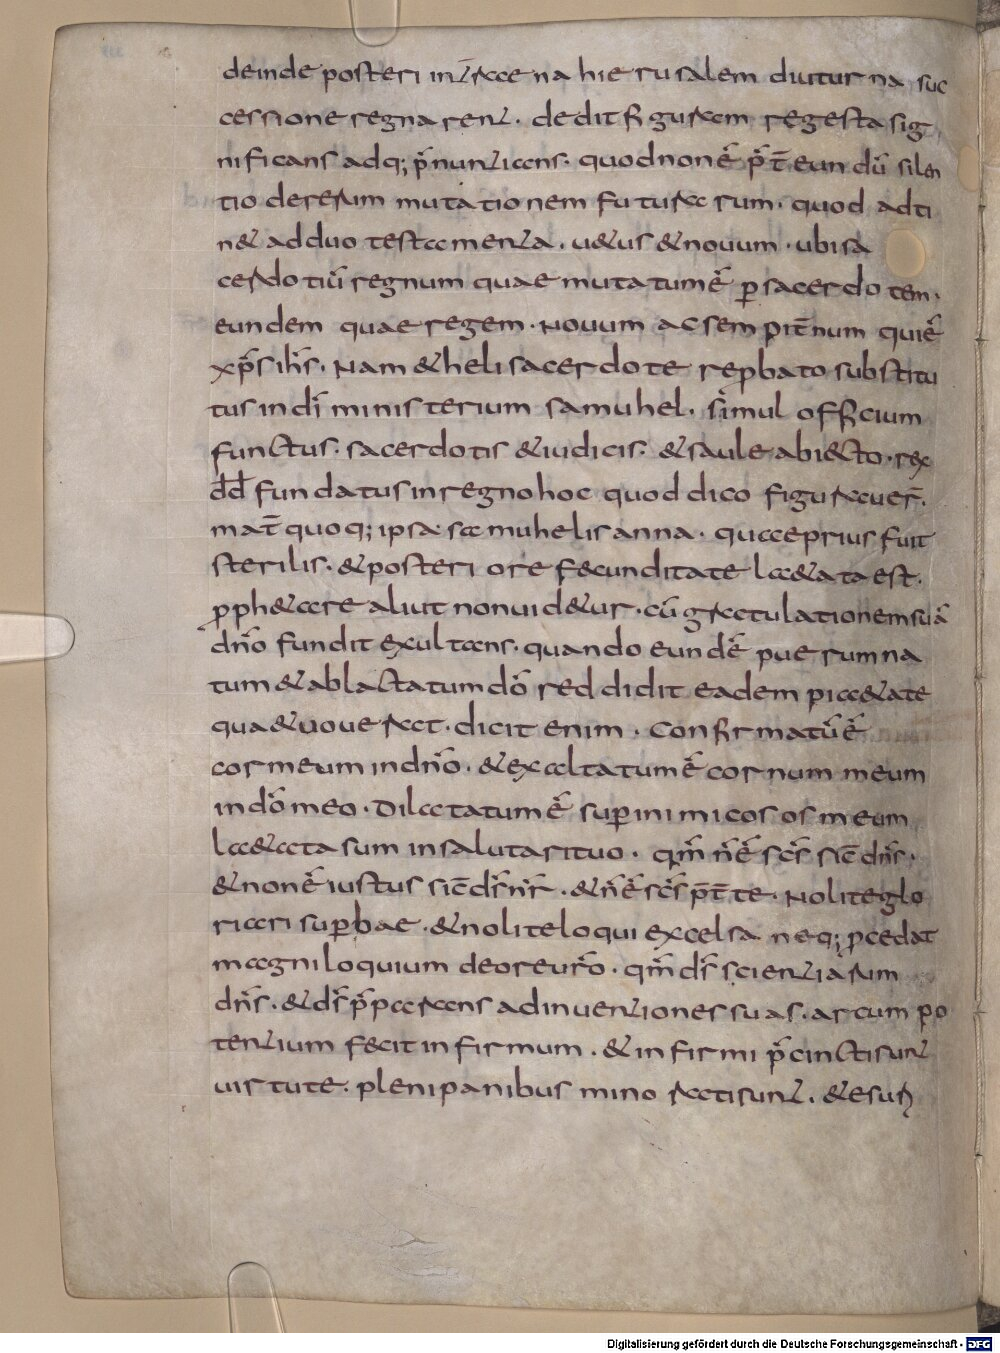 deinde posteri intraena hierusalem diuturna suc
cessione regnarent. dedit figuram re gesta sig
nificans adq; p̄nuntians. quod non ē p̄t̄eundū silen
tio de rerum mutationem futurarum. quod adti
n& ad duo testamenta. u&us & nouum. ubi sa
cerdotiū regnum quae mutatum ē ꝑ sacerdotem.
eundem quae regem. Nouum ac sempit̄num qui ē
xp̄s ih̄s. Nam & heli sacerdote reꝓbato substitu
tus in dī ministerium samuhel. simul officium
functus. sacerdotis & iudicis. & saule abi&cto. rex
dd̄ fundatus in regno hoc quod dico figurauer̄.
mat̄ quoq; ipsa samuhelis anna. quae prius fuit
sterilis. & posteriore fecunditate la&ata est.
ꝓph&are aliut non uid&ur. cū gratulationem suā
dn̄o fundit exultans. quando eundē puerum na
tum & ablactatum dō reddidit eadem pi&ate
qua & uouerat. dicit enim. Confirmatū ē
cor meum in dn̄o. & exaltatum ē cornum meum
in dō meo. Dilatatum ē suꝑ inimicos os meum
la&ata sum in salutari tuo. qm̄ n̄ ē sc̄s sic̄ dn̄s.
& non ē iustus sic̄ ds̄ nr̄. & n̄ ē sc̄s p̄t̄ te. Nolite glo
riari suꝑbae. & nolite loqui excelsa neq; ꝓcedat
magniloquium de ore uro. qm̄ ds̄ scientiarum
dn̄s. & ds̄ p̄parans adinuentiones suas. arcum po
tentium fecit infirmum. & infirmi p̄cincti sunt
uirtute. pleni panibus minorati sunt. & esur̄
Digitalisierung gefördert durch die Deutsche Forschungsgemeinschaft - DFG